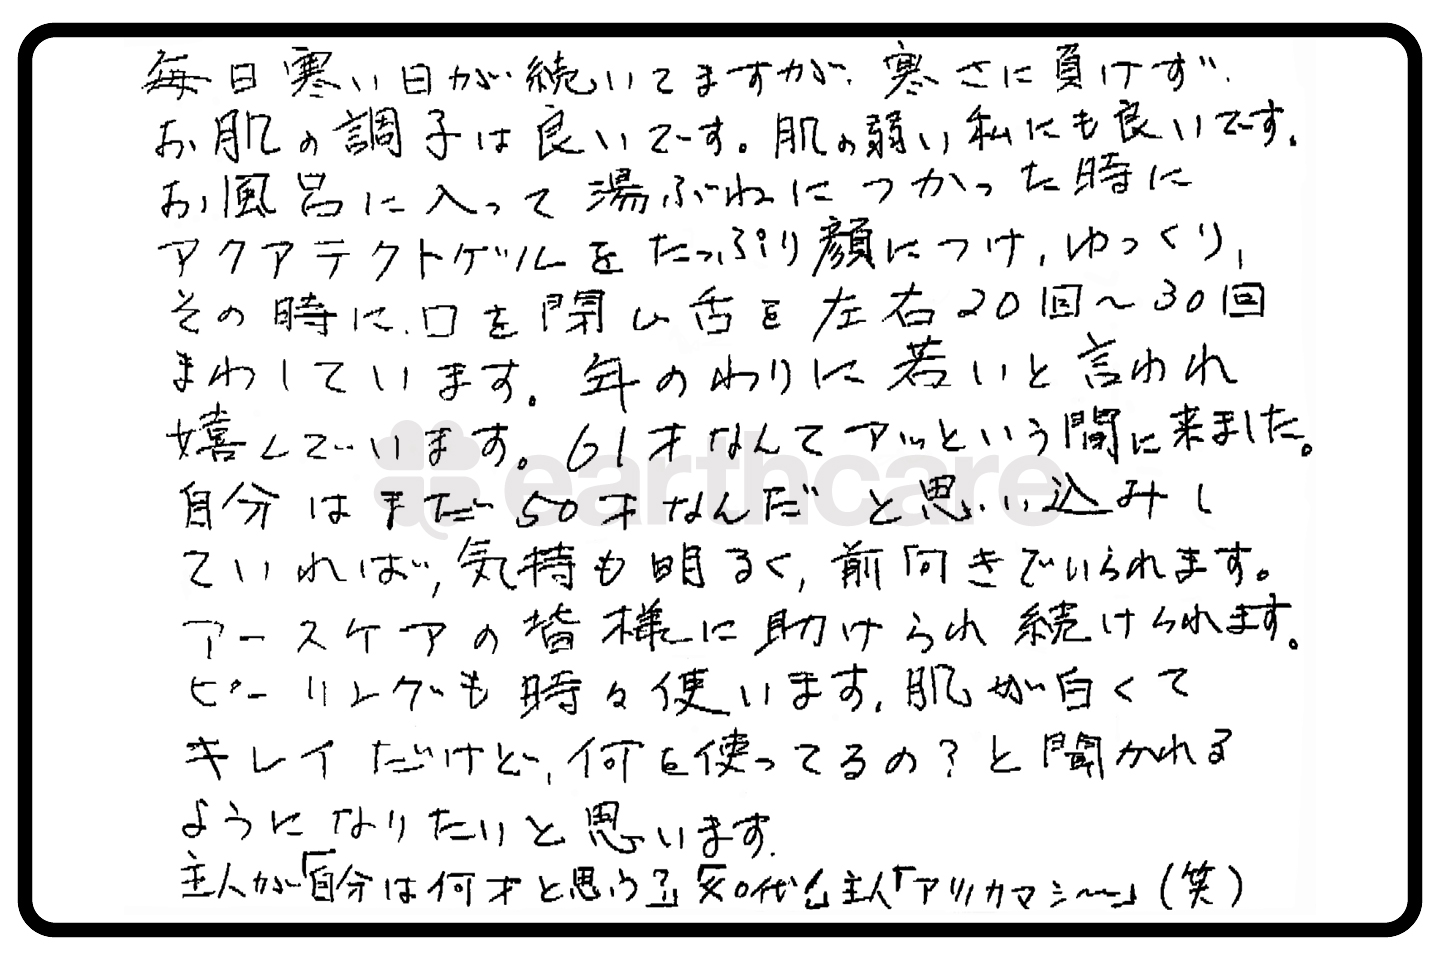 毎日寒い日が続いてますが、寒さに負けず、
お肌の調子は良いです。肌の弱い私にも良いです。
お風呂に入って湯ぶねにつかった時に
アクアテクトゲルをたっぷり顔につけ、ゆっくり、
その時に、口を閉じ舌を左右20回〜30回
まわしています。年のわりに若いと言われ
嬉しでいます。61才なんてアッという間に来ました。
自分はまだ50才なんだと思い込みし
ていれば、気持も明るく、前向きでいられます。
アースケアの皆様に助けられ続けられます。
ピーリングも時々使います。肌が白くて
キレイだけど、何を使ってるの?と聞かれる
ようになりたいと思います。
主人が「自分は何才と思う?」「 0代」主人「アツカマシ〜〜」(笑)
earthcare